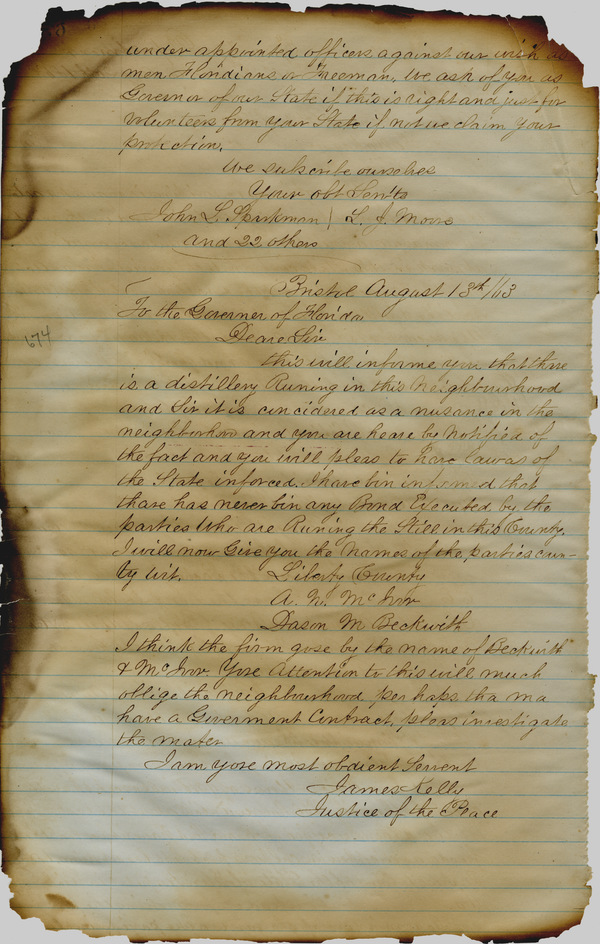 under appointed officers against our wish as
men Floridians or Freeman. We ask of you as
Governor of our State if this is right and just for
volunteers from your State if not we claim your
protection.
We subscribe ourselves
Your obt Serv'ts
John L. Sparkman | L. J. Moore
and 22 others
Bristol August 13th/63
To the Governer of Florida
Deare Sir
this will informe you that thare
is a distillery Runing in this Neighbourhood
and Sir it is concidered as a nusance in the
neighborhoo and you are heare by Notified of
the fact and you will pleas to have lawas of
the State inforced. I have bin informed that
thare has never bin any Bond Executed by the
parties Who are Runing the Still in this County.
I will now Give you the Names of the parties coun-
ty wit. Liberty County
A. N. McIvor
Dason M Beckwith
I think the firm gose by the name of Beckwith
& McIvor. Yore Attention to this will much
oblige the neighbourhood per haps tha ma
have a Goverment Contract, pleas investigate
the mater
I am yore most obdient Servent
James Kelly
Justice of the Peace
674